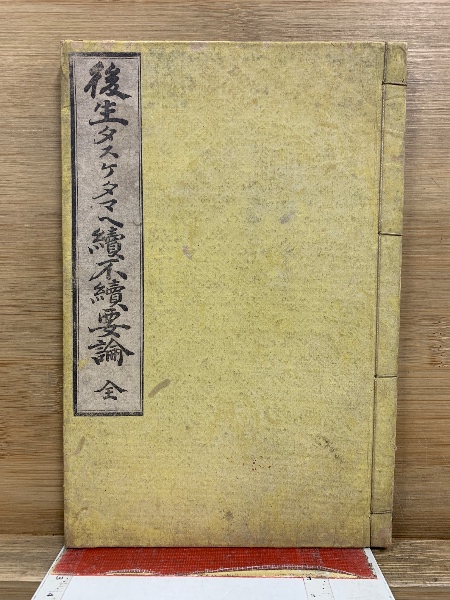 後生タスケタマヘ續不續要論 全